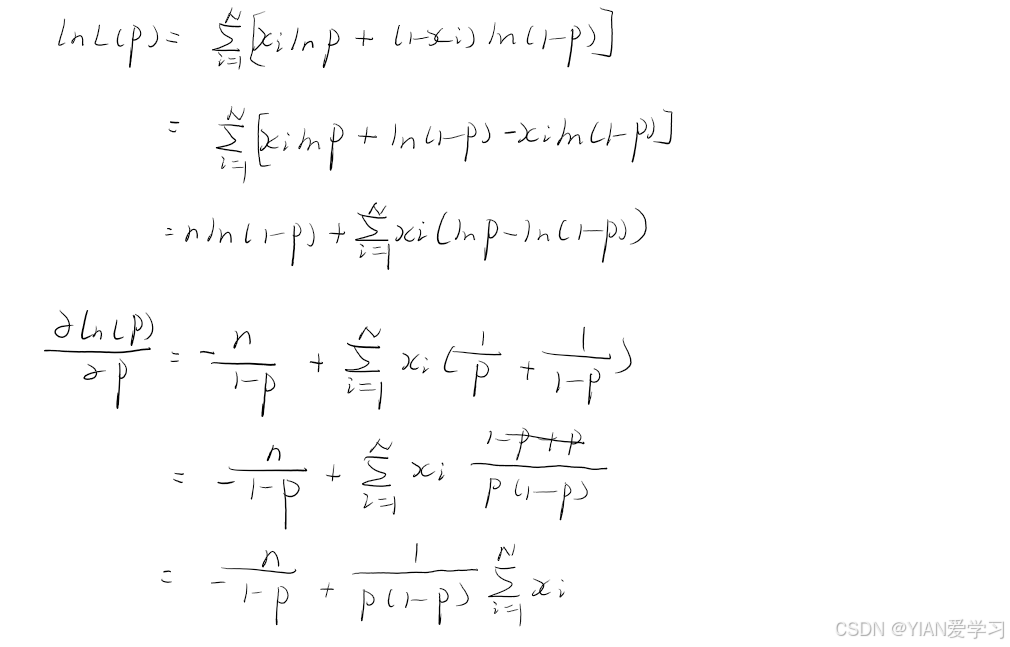 ln L(p) = ∑_{i=1}^{N} [x_i ln p + (1-x_i) ln(1-p)]
= ∑_{i=1}^{N} [x_i ln p + ln(1-p) - x_i ln(1-p)]
= n ln(1-p) + ∑_{i=1}^{N} x_i (ln p - ln(1-p))
∂ ln L(p) / ∂p = - n/(1-p) + ∑_{i=1}^{N} x_i (1/p + 1/(1-p))
= - n/(1-p) + ∑_{i=1}^{N} x_i (1-p+p)/(p(1-p))
= - n/(1-p) + 1/(p(1-p)) ∑_{i=1}^{N} x_i
CSDN @YIAN爱学习